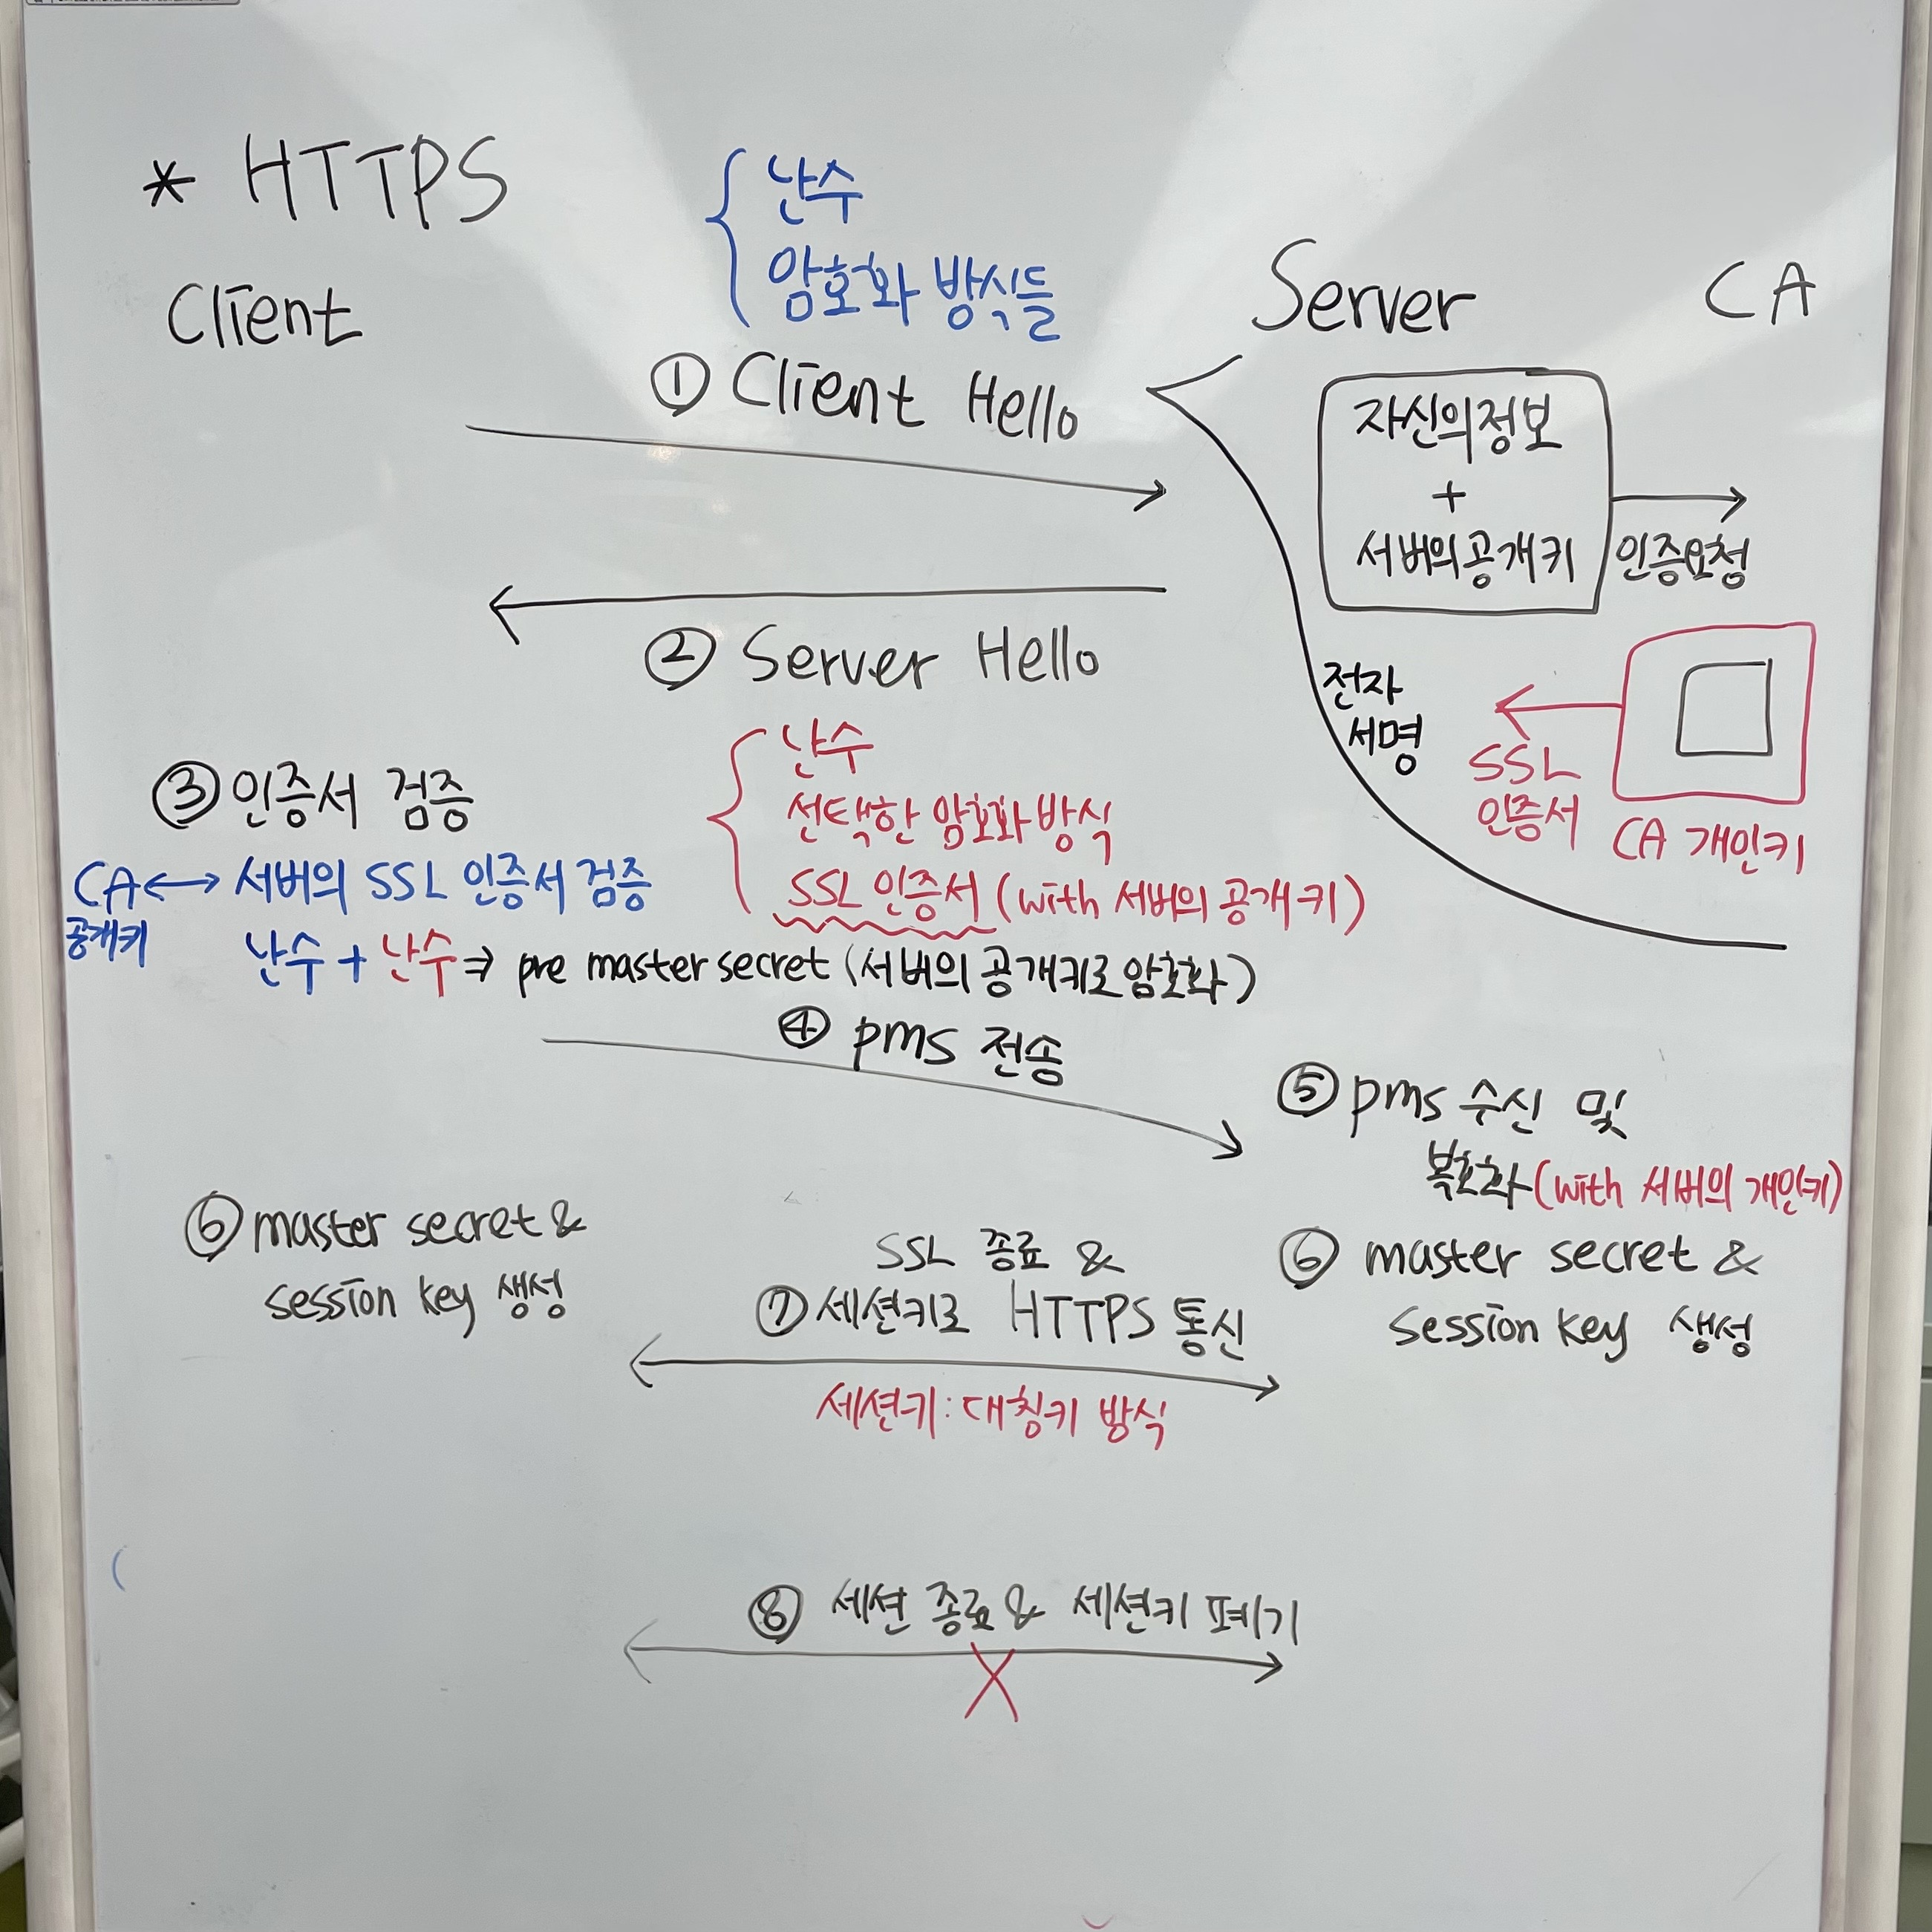 * HTTPS
난수
암호화 방식들
Client
Server
CA
① Client Hello
자신의정보
+
서버의공개키
인증요청
② Server Hello
전자
서명
SSL
인증서
CA 개인키
난수
선택한 암호화 방식
SSL 인증서 (with 서버의 공개키)
③ 인증서 검증
CA ↔ 서버의 SSL 인증서 검증
공개키
난수 + 난수 ⇒ pre master secret (서버의 공개키로 암호화)
④ pms 전송
⑤ pms 수신 및
복호화 (with 서버의 개인키)
⑥ master secret &
session key 생성
SSL 종료 &
⑦ 세션키로 HTTPS 통신
세션키 : 대칭키 방식
⑥ master secret &
session key 생성
⑧ 세션 종료 & 세션키 폐기
X